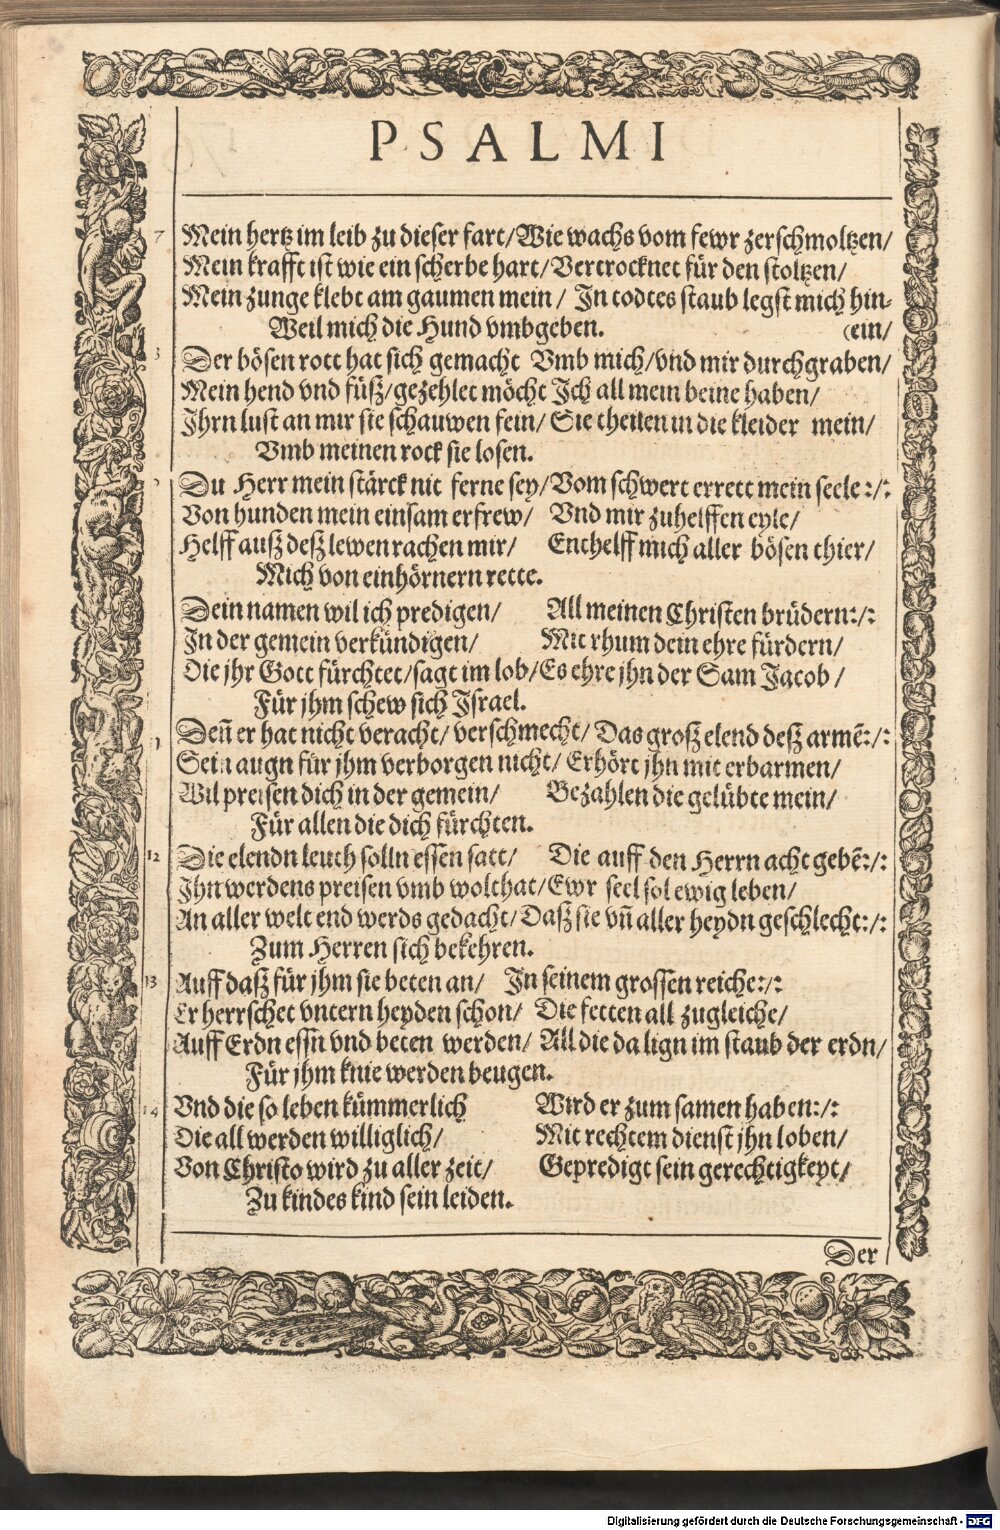 PSALMI
7 Mein hertz im leib zu dieser fart/Wie wachs vom fewr zerschmoltzen/
Mein krafft ist wie ein scherbe hart/Vertrocknet für den stoltzen/
Mein zunge klebt am gaumen mein/ In todtes staub legst mich hin-
Weil mich die Hund vmbgeben. (ein/
Der bösen rott hat sich gemacht Vmb mich/vnd mir durchgraben/
Mein hend vnd füß/gezehlet möcht Ich all mein beine haben/
Ihrn lust an mir sie schauwen fein/ Sie theilen in die kleider mein/
Vmb meinen rock sie losen.
Du Herr mein stärck nit ferne sey/Vom schwert errett mein seele:/:
Von hunden mein einsam erfrew/ Vnd mir zuhelffen eyle/
Helff auß deß lewen rachen mir/ Enthelff mich aller bösen thier/
Mich von einhörnern rette.
Dein namen wil ich predigen/ All meinen Christen brüdern:/:
In der gemein verkündigen/ Mit rhum dein ehre fürdern/
Die jhr Gott fürchtet/sagt im lob/Es ehre jhn der Sam Jacob/
Für jhm schew sich Israel.
Deñ er hat nicht veracht/ verschmecht/ Das groß elend deß armẽ:/:
Sein augn für jhm verborgen nicht/ Erhört jhn mit erbarmen/
Wil preisen dich in der gemein/ Bezahlen die gelübte mein/
Für allen die dich fürchten.
12 Die elendn leuth solln essen satt/ Die auff den Herrn acht gebẽ:/:
Ihn werdens preisen vmb wolthat/Ewr seel sol ewig leben/
An aller welt end werds gedacht/Daß sie vñ aller heydn geschlecht:/:
Zum Herren sich bekehren.
13 Auff daß für jhm sie beten an/ In seinem grossen reiche:/:
Er herrschet vntern heyden schon/ Die fetten all zugleiche/
Auff Erdn essn vnd beten werden/ All die da lign im staub der erdn/
Für jhm knie werden beugen.
14 Vnd die so leben kümmerlich Wird er zum samen haben:/:
Die all werden williglich/ Mit rechtem dienst jhn loben/
Von Christo wird zu aller zeit/ Gepredigt sein gerechtigkeyt/
Zu kindes kind sein leiden.
Der
Digitalisierung gefördert durch die Deutsche Forschungsgemeinschaft - DFG